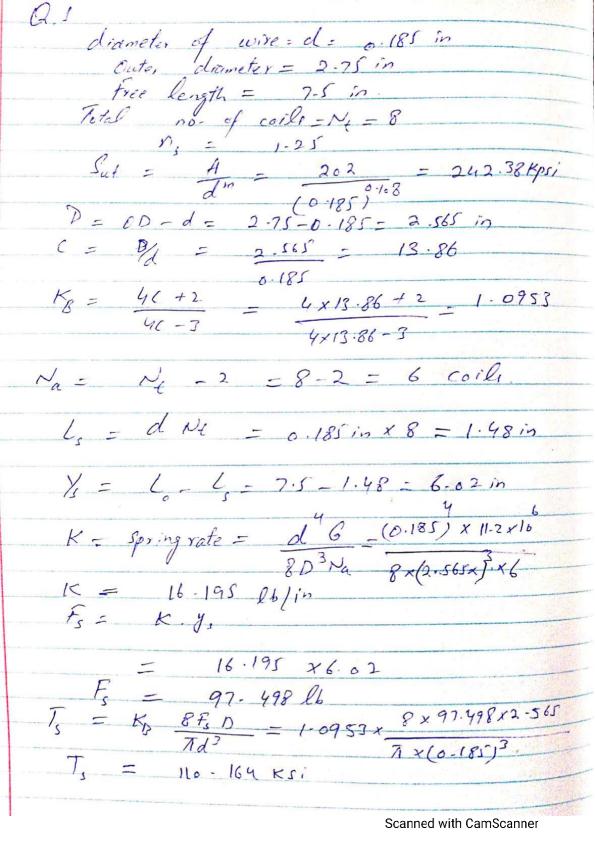 Q.1
diameter of wire = d = 0.185 in
Outer diameter = 2.75 in
free length = 7.5 in.
Total no. of coils = Nt = 8
ns = 1.25
Sut = A / d^m = 202 / (0.185)^0.108 = 242.38 Kpsi
D = OD - d = 2.75 - 0.185 = 2.565 in
C = D/d = 2.565 / 0.185 = 13.86
KB = 4C + 2 / 4C - 3 = 4 x 13.86 + 2 / 4 x 13.86 - 3 = 1.0953
Na = Nt - 2 = 8 - 2 = 6 coils.
Ls = d Nt = 0.185 in x 8 = 1.48 in
Ys = Lo - Ls = 7.5 - 1.48 = 6.02 in
K = spring rate = d^4 G / 8D^3 Na = (0.185)^4 x 11.2 x 10^6 / 8 x (2.565x)^3 x 6
K = 16.195 lb/in
Fs = K. ys
= 16.195 x 6.02
Fs = 97.498 lb
Ts = KB 8 Fs D / πd^3 = 1.0953 x 8 x 97.498 x 2.565 / π x (0.185)^3
Ts = 110.164 Ksi
Scanned with CamScanner